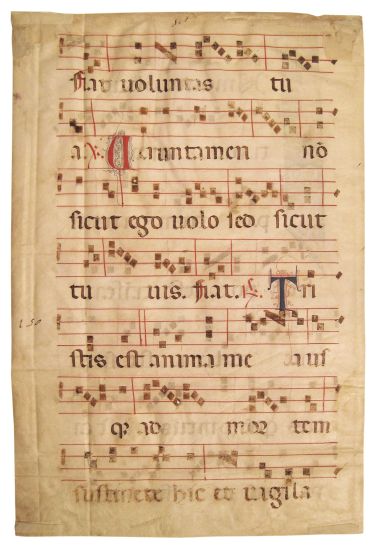 fiat voluntas tu
a. V. Veruntamen nō
sicut ego volo sed sicut
tu vis. fiat. R. Tri
stis est anima me a us
qȝ ad mor tem
sustinete hic et vigila